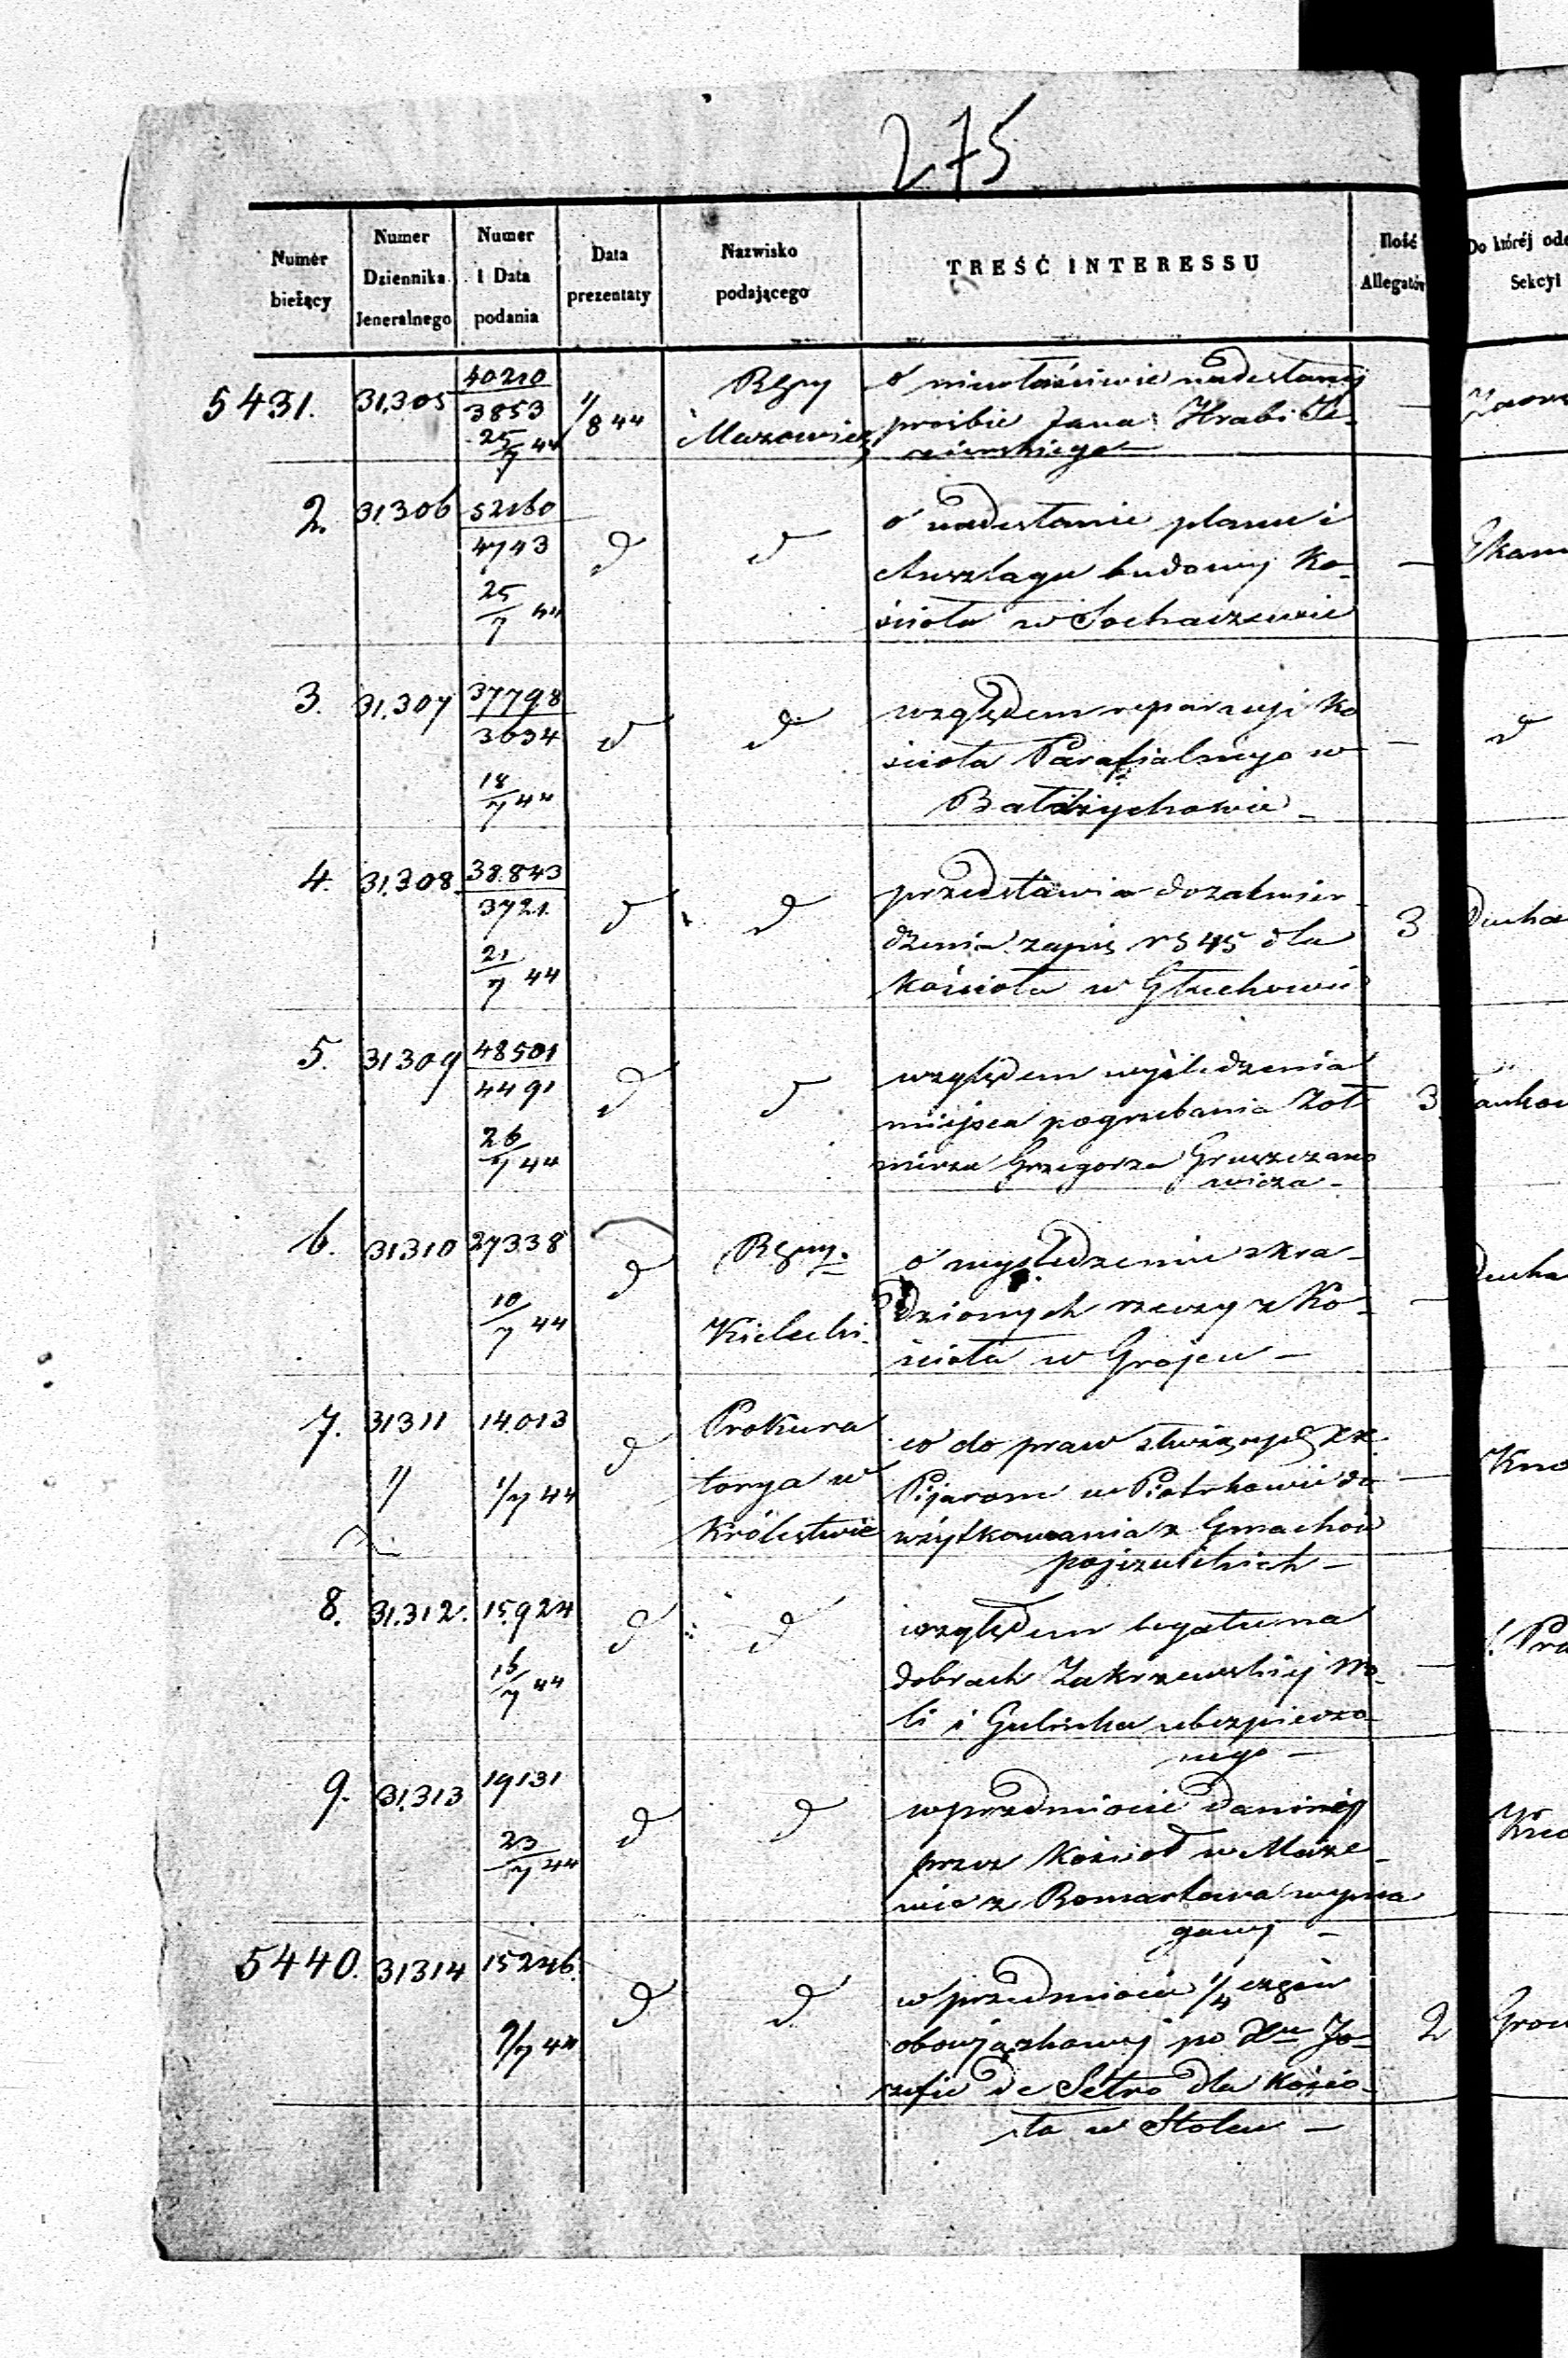 275
Numer bieżący
Numer Dziennika Jeneralnego
Numer i Data podania
Data prezentaty
Nazwisko podającego
TREŚĆ INTERESSU
Ilość Allegatów
Do któréj ode
Sekcyi
5431. 31,305 40210 3853 25/7 44 1/8 44 RGpy Mazowiec
o niewłaściwie nadesłany
proźbie Jana Hrabi
2. 31306 52160 4743 25/7 44 d d
o nadesłanie planu i
Anszlagu budowy Ko-
ścioła w Sochaczewie
3. 31,307 37798 3634 18/7 44 d d
względem reparacyi Ko
ścioła Parafialnego w
Bałdrzychowie
d
4. 31,308 38.843 3721. 21/7 44 d d
przedstawia do zatwier
dzenia zapis rs 45 dla
Kościoła w Głuchowie
3
5. 31309 48501 4491 26/7 44 d d
względem wyśledzenia
miejsca pogrzebania Żoł
nierza Grzegorza Gruszczano
wicza -
3
6. 31310 27338 10/7 44 d RGpny. Kielecki.
o wyśledzenie skra-
dzionych rzeczy z Ko-
ścioła w Grojcu -
7. 31311 14.013 1/7 44 d Prokura
torya w
Królestwie
co do praw służących XX
Pijarom w Piotrkowie do
użytkowania z Gmachów
pojezuickich -
8. 31.312. 15924 16/7 44 d d
względem legatu na
dobrach Zakrzewskiej Wo-
li i Gulinka ubezpieczo-
nego -
9. 31.313 19131 23/7 44 d d
w przedmiocie daniny
przez Kościoł w
wie z
gany -
5440. 31314 15246. 9/7 44 d d
w przedmiocie 1/4 części
obowiązkowej po Xu Jó-
zefie de Setro dla Kościo-
ła w
2